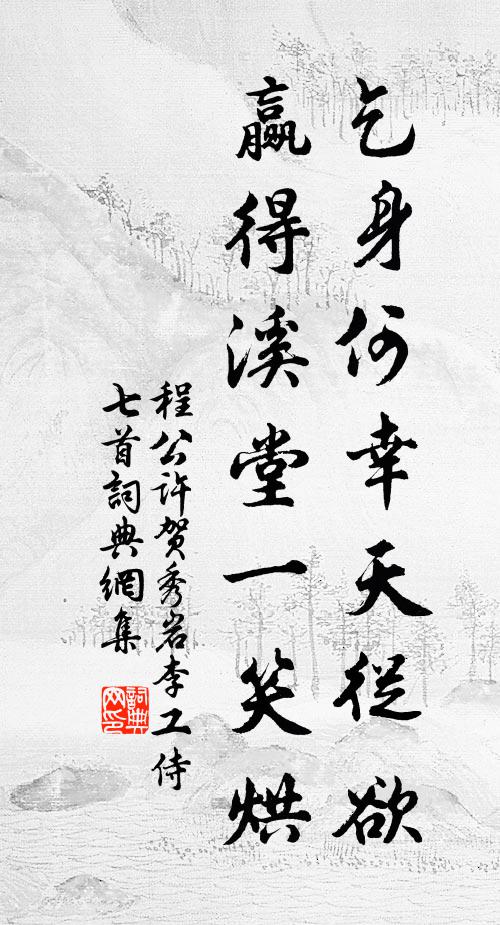 乞身何幸天從欲
贏得溪堂一笑烘
程公许贺秀岩李工侍
七首詞典網集
詞典网印